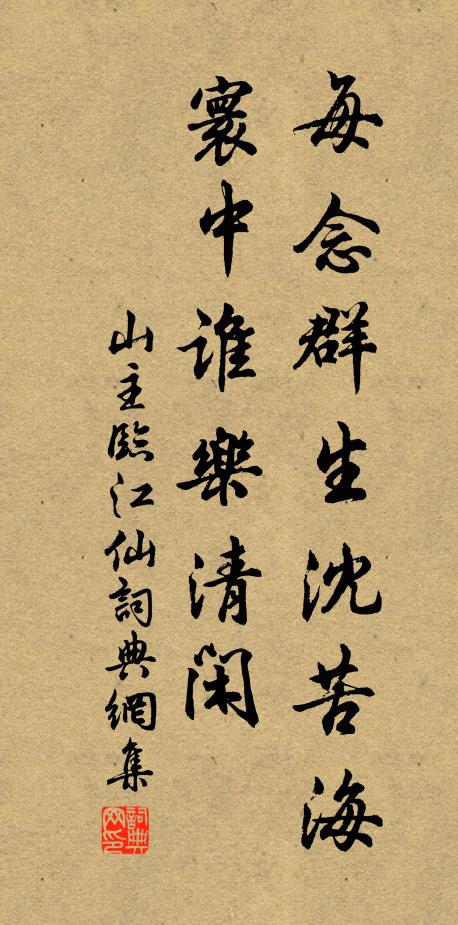 每念群生沈苦海
寰中誰樂清閑
山主臨江仙詞典網集
詞典網印